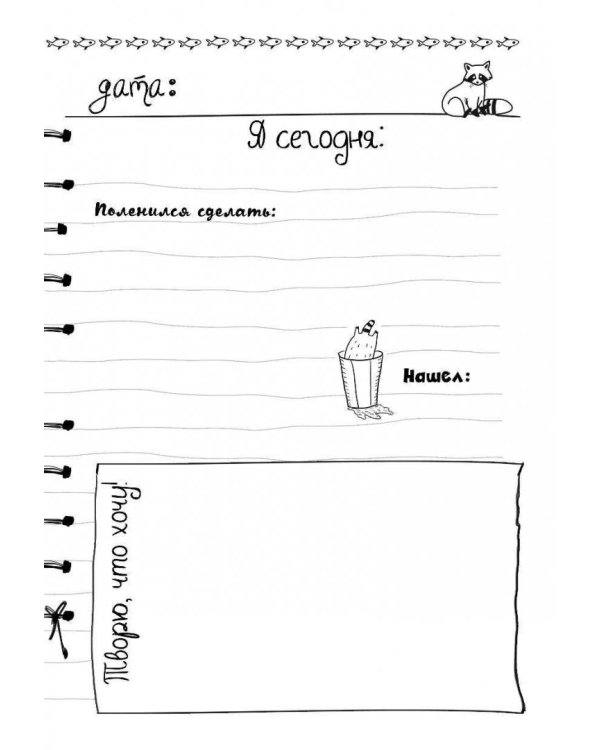 дата:
Я сегодня:
Поленился сделать:
Нашел:
Творю, что хочу!